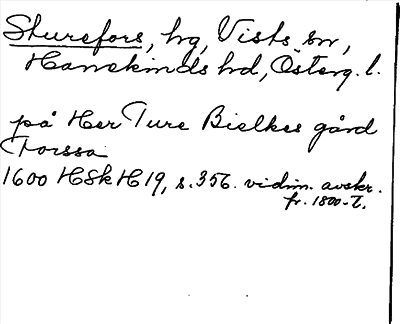 Sturefors, hg, Vists sn,
Hanekinds hd, Österg. l.
på Her Ture Bielkes gård
Forssa
1600 HSkH 19, s. 356. vidim. avskr.
fr. 1800-t.